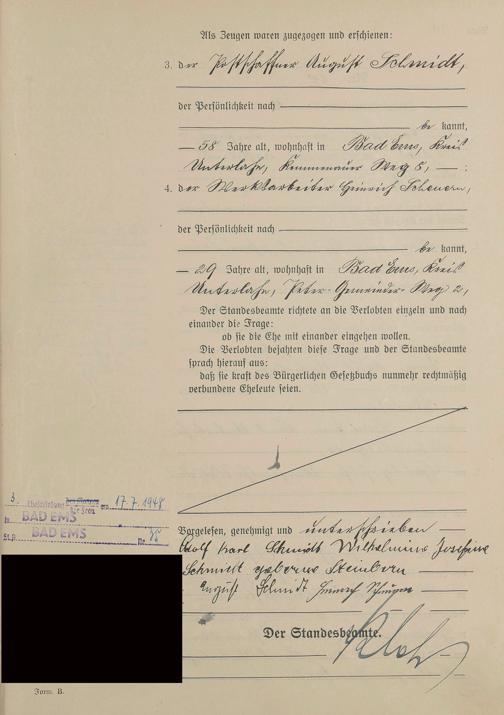 Als Zeugen waren zugezogen und erschienen:
3. der Postschaffner August Schmidt,
der Persönlichkeit nach
be kannt,
58 Jahre alt, wohnhaft in Bad Ems, Kreis
Unterlahn, Kemmenauer Weg 8, ;
4. der Werkarbeiter Heinrich
der Persönlichkeit nach
be kannt,
29 Jahre alt, wohnhaft in Bad Ems, Kreis
Unterlahn, Peter- Weg 2,
Der Standesbeamte richtete an die Verlobten einzeln und nach
einander die Frage:
ob sie die Ehe mit einander eingehen wollen.
Die Verlobten bejahten diese Frage und der Standesbeamte
sprach hierauf aus:
daß sie kraft des Bürgerlichen Gesetzbuchs nunmehr rechtmäßig
verbundene Eheleute seien.
3. Eheschließung am 17.7.1948
in BAD EMS
St.A. BAD EMS Nr.
Vorgelesen, genehmigt und unterschrieben
Adolf Karl Schmidt Wilhelmine Josefine
Schmidt geborene Steinborn
August Schmidt Heinrich
Der Standesbeamte.
Form. B.